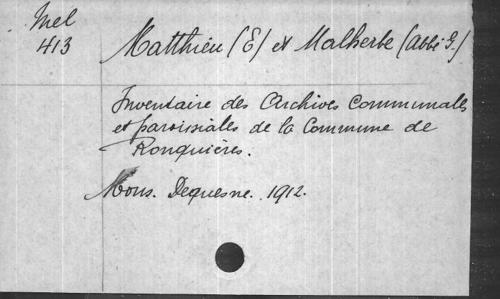 Mel
413
Matthieu (E) et Malherbe (Abbé G.)
Inventaire des Archives Communales
et paroissiales de la Commune de
Ronquières.
Mons. Dequesne. 1912.